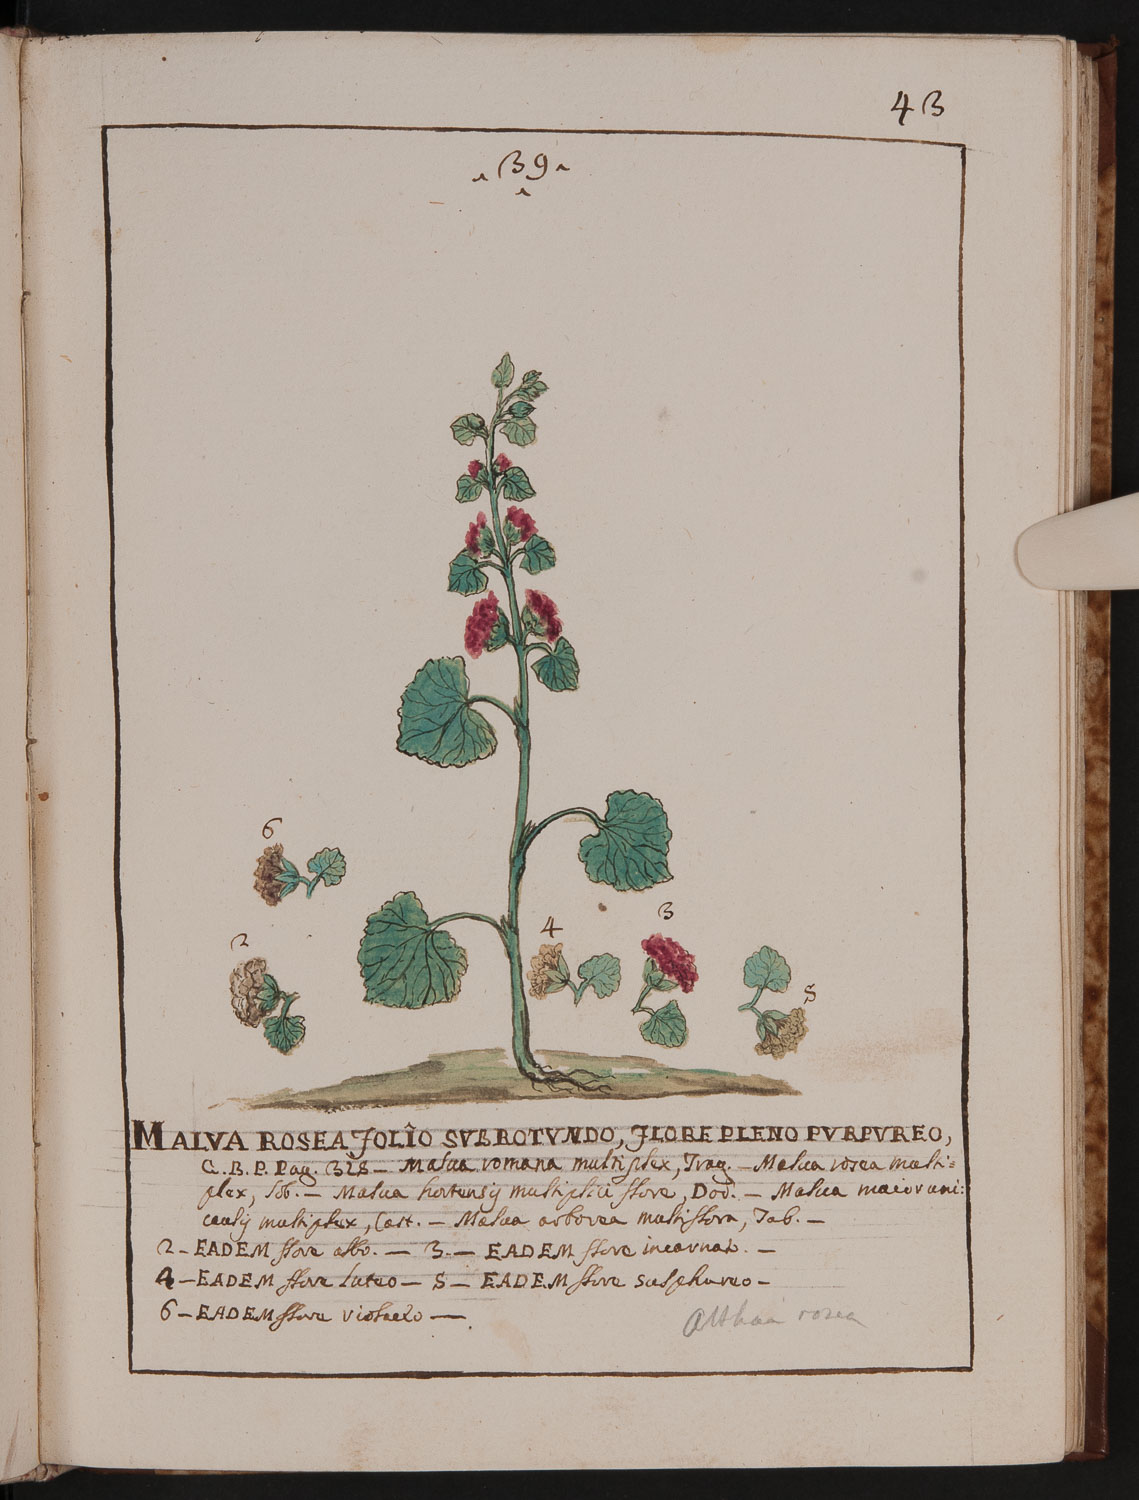 43
39
6
3
4
2
5
MALVA ROSEA FOLIO SVBROTVNDO, FLORE PLENO PVRPVREO,
C. B. P. Pag. 315 — Malua romana multiplex, Trag. — Malua rosea multi=
plex, lob. — Malua hortensis multiplici flore, Dod. — Malua maior uni:
caulis multiplex, Cast. — Malua arborea multiflora, Tab. —
2 — EADEM flore albo. — 3. — EADEM flore incarnat. —
4 — EADEM flore luteo — 5 — EADEM flore sulphureo —
6 — EADEM flore violaceo —
Althaea rosea